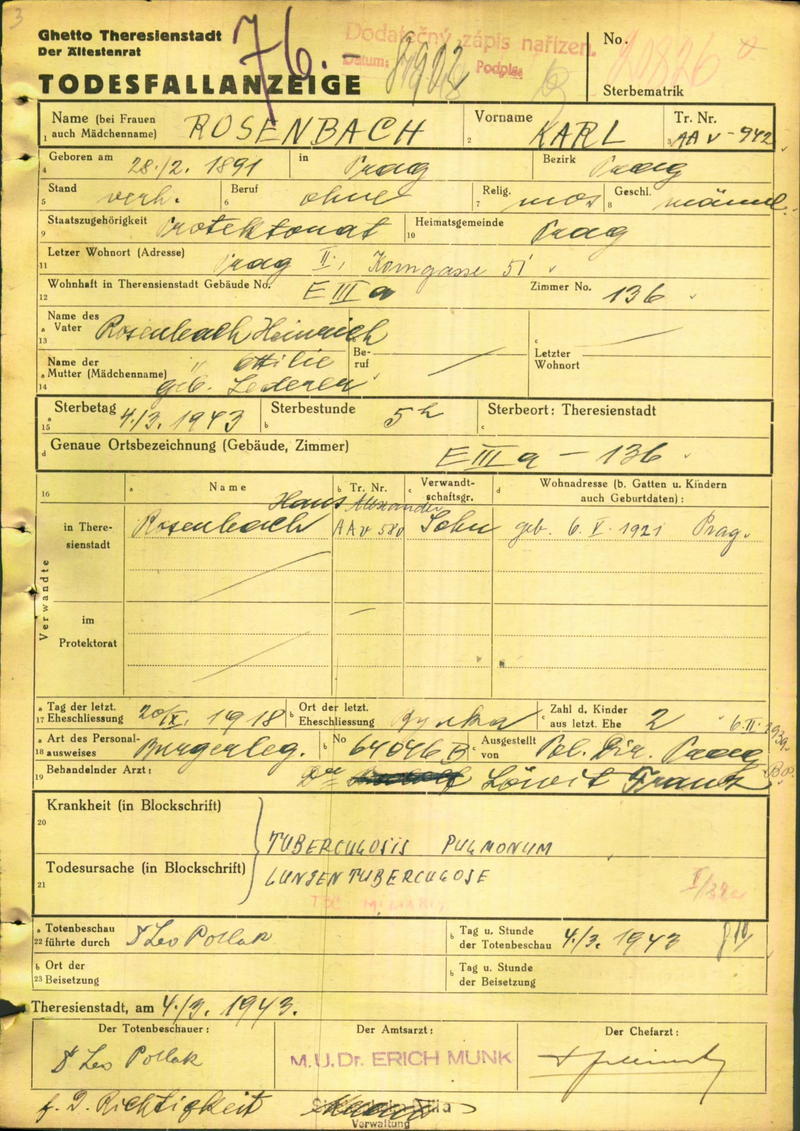 3
Ghetto Theresienstadt
Der Ältestenrat
76.-
8902
Dodatečný zápis nařízen.
Datum: Podpis:
No.
20826
TODESFALLANZEIGE
Sterbematrik
Name (bei Frauen auch Mädchenname) ROSENBACH Vorname KARL Tr. Nr. AAv-942
1 2 3
4 Geboren am 28./2. 1891 in Prag Bezirk Prag
5 Stand verh. 6 Beruf ohne 7 Relig. mos 8 Geschl. männl.
9 Staatszugehörigkeit Protektorat 10 Heimatsgemeinde Prag
11 Letzer Wohnort (Adresse) Prag II, Korngasse 51
12 Wohnhaft in Theresienstadt Gebäude No. E III a Zimmer No. 136
13 a Name des Vater Rosenbach Heinrich
14 a Name der Mutter (Mädchenname) " Ottilie
geb. Lederer
b Beruf
c Letzter Wohnort
15 a Sterbetag 4./3. 1943 b Sterbestunde 5 h c Sterbeort: Theresienstadt
d Genaue Ortsbezeichnung (Gebäude, Zimmer) E III a - 136
16 a Name b Tr. Nr. c Verwandtschaftsgr. d Wohnadresse (b. Gatten u. Kindern auch Geburtdaten):
Verwandte
in Theresienstadt Rosenbach Hans Alexander AAv 580 Sohn geb. 6. V. 1921 Prag.
im Protektorat
17 a Tag der letzt. Eheschliessung 20/IX. 1918 b Ort der letzt. Eheschliessung c Zahl d. Kinder aus letzt. Ehe 2
18 a Art des Personalausweises Bürgerleg. b No 64046 B c Ausgestellt von Pol. Dir. Prag 6. II. 1939
19 Behandelnder Arzt: Dr Löwit Frank
20 Krankheit (in Blockschrift) TUBERCULOSIS PULMONUM
21 Todesursache (in Blockschrift) LUNGENTUBERCULOSE
22 a Totenbeschau führte durch Dr Leo Pollak b Tag u. Stunde der Totenbeschau 4./3. 1943
23 b Ort der Beisetzung b Tag u. Stunde der Beisetzung
Theresienstadt, am 4./3. 1943.
Der Totenbeschauer: Der Amtsarzt: Der Chefarzt:
Dr Leo Pollak M.U.Dr. ERICH MUNK
f. d. Richtigkeit
Verwaltung